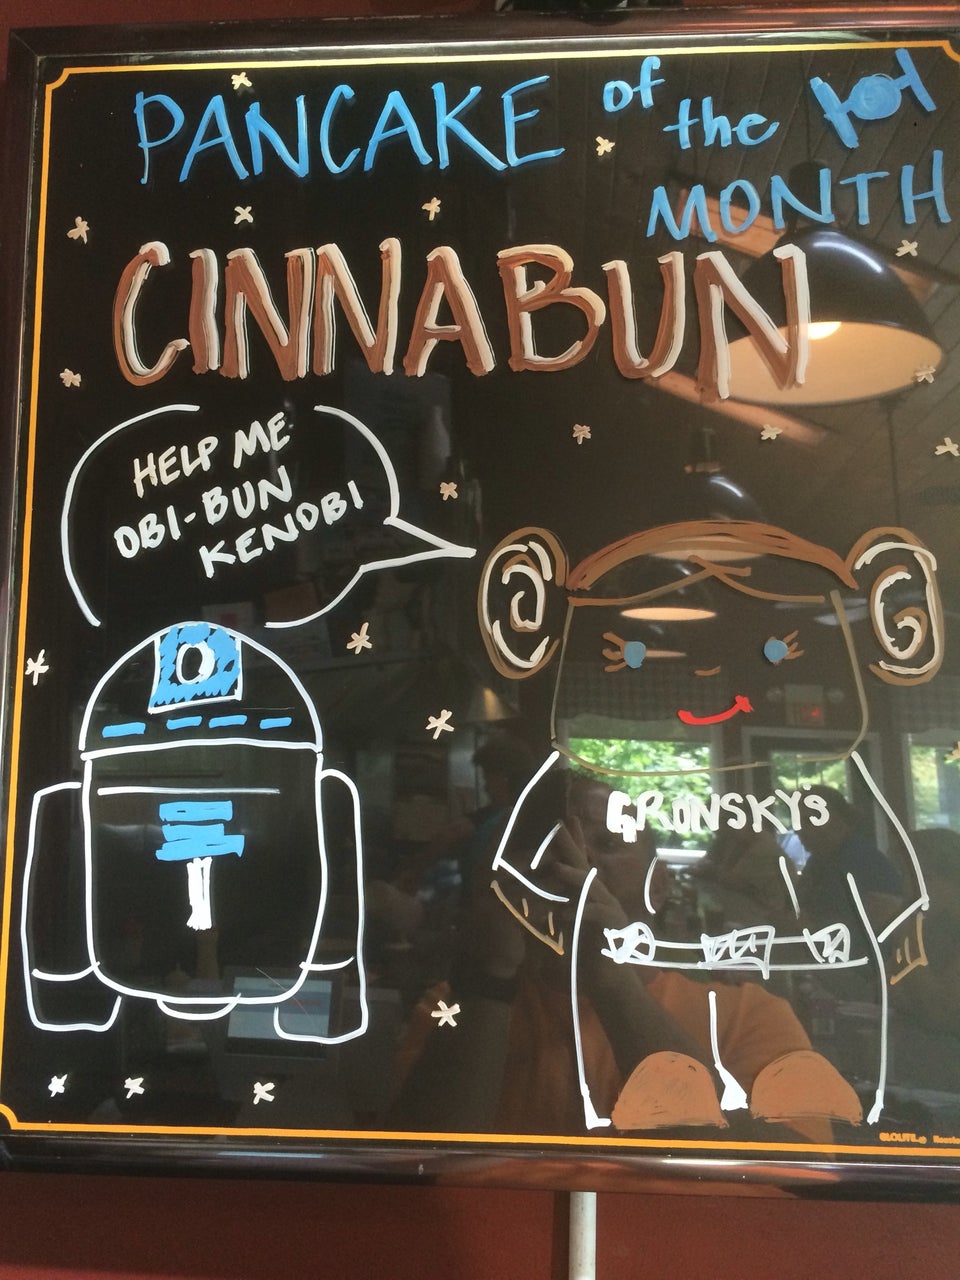 PANCAKE of the
MONTH
CINNABUN
HELP ME
OBI-BUN
KENOBI
GRONSKY'S